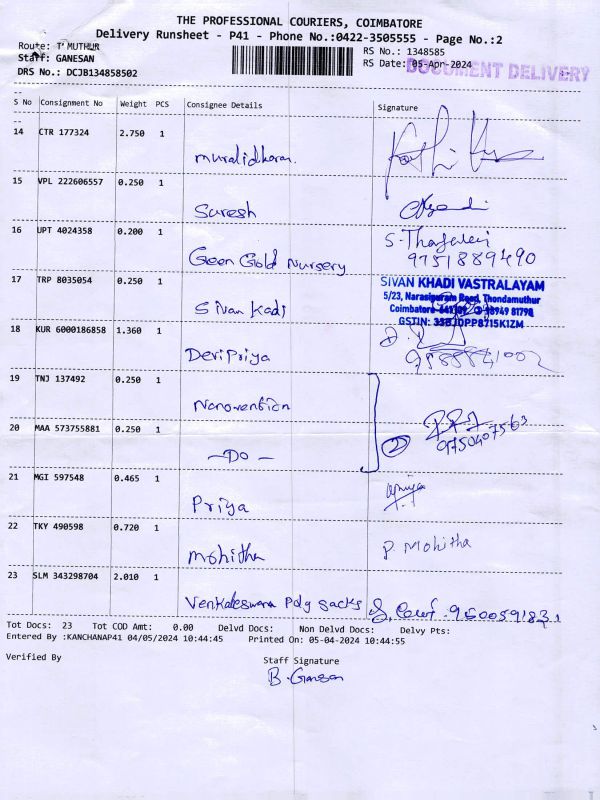 THE PROFESSIONAL COURIERS, COIMBATORE
Delivery Runsheet - P41 - Phone No.:0422-3505555 - Page No.:2
Route: T'MUTHUR RS No.: 1348585
Staff: GANESAN RS Date: 05-Apr-2024
DOCUMENT DELIVERY
DRS No.: DCJB134858502
S No Consignment No Weight PCS Consignee Details Signature
14 CTR 177324 2.750 1
muralidharan.
15 VPL 222606557 0.250 1
Suresh
16 UPT 4024358 0.200 1
Geen Gold Nursery
9751889490
17 TRP 8035054 0.250 1
Sivan Kadi
SIVAN KHADI VASTRALAYAM
5/23, Narasipuram Road, Thondamuthur
Coimbatore-641109 98949 81798
GSTIN: 33BJDPP8715K1ZM
18 KUR 6000186858 1.360 1
DeviPriya
19 TNJ 137492 0.250 1
Nanovention
20 MAA 573755881 0.250 1
-DO-
2
9750407563
21 MGI 597548 0.465 1
Priya
22 TKY 490598 0.720 1
mohitha P. Mohitha
23 SLM 343298704 2.010 1
Venkateswara Poly sacks
Tot Docs: 23 Tot COD Amt: 0.00 Delvd Docs: Non Delvd Docs: Delvy Pts:
Entered By :KANCHANAP41 04/05/2024 10:44:45 Printed On: 05-04-2024 10:44:55
Verified By Staff Signature
B. Ganesan